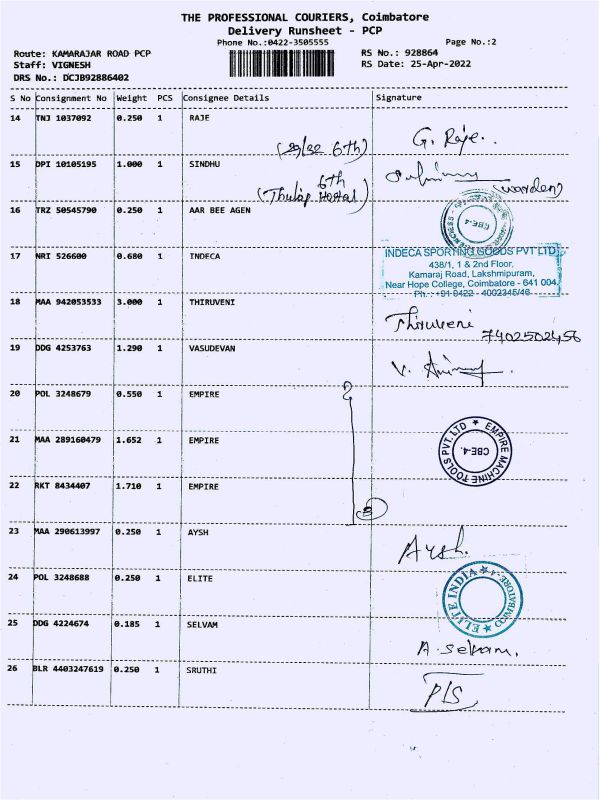 THE PROFESSIONAL COURIERS, Coimbatore
Delivery Runsheet - PCP
Phone No.:0422-3505555
Page No.:2
Route: KAMARAJAR ROAD PCP
RS No.: 928864
Staff: VIGNESH
RS Date: 25-Apr-2022
DRS No.: DCJB92886402
S No Consignment No Weight PCS Consignee Details Signature
14 TNJ 1037092 0.250 1 RAJE
6th)
G. Raje.
15 DPI 10105195 1.000 1 SINDHU
6th
(Thulap Hostal)
(warden)
16 TRZ 50545790 0.250 1 AAR BEE AGEN
CBE-4
17 NRI 526600 0.680 1 INDECA
INDECA SPORTING GOODS PVT LTD
438/1, 1 & 2nd Floor,
Kamaraj Road, Lakshmipuram,
Near Hope College, Coimbatore - 641 004.
Ph. : +91 0422 - 4002345/46
18 MAA 942053533 3.000 1 THIRUVENI
Thiruveni
7402502456
19 DDG 4253763 1.290 1 VASUDEVAN
V.
20 POL 3248679 0.550 1 EMPIRE
21 MAA 289160479 1.652 1 EMPIRE
EMPIRE MACHINE TOOLS PVT. LTD
CBE-4.
22 RKT 8434407 1.710 1 EMPIRE
23 MAA 290613997 0.250 1 AYSH
Aysh.
24 POL 3248688 0.250 1 ELITE
ELITE INDIA
COIMBATORE-4
25 DDG 4224674 0.185 1 SELVAM
A. Selvam.
26 BLR 4403247619 0.250 1 SRUTHI